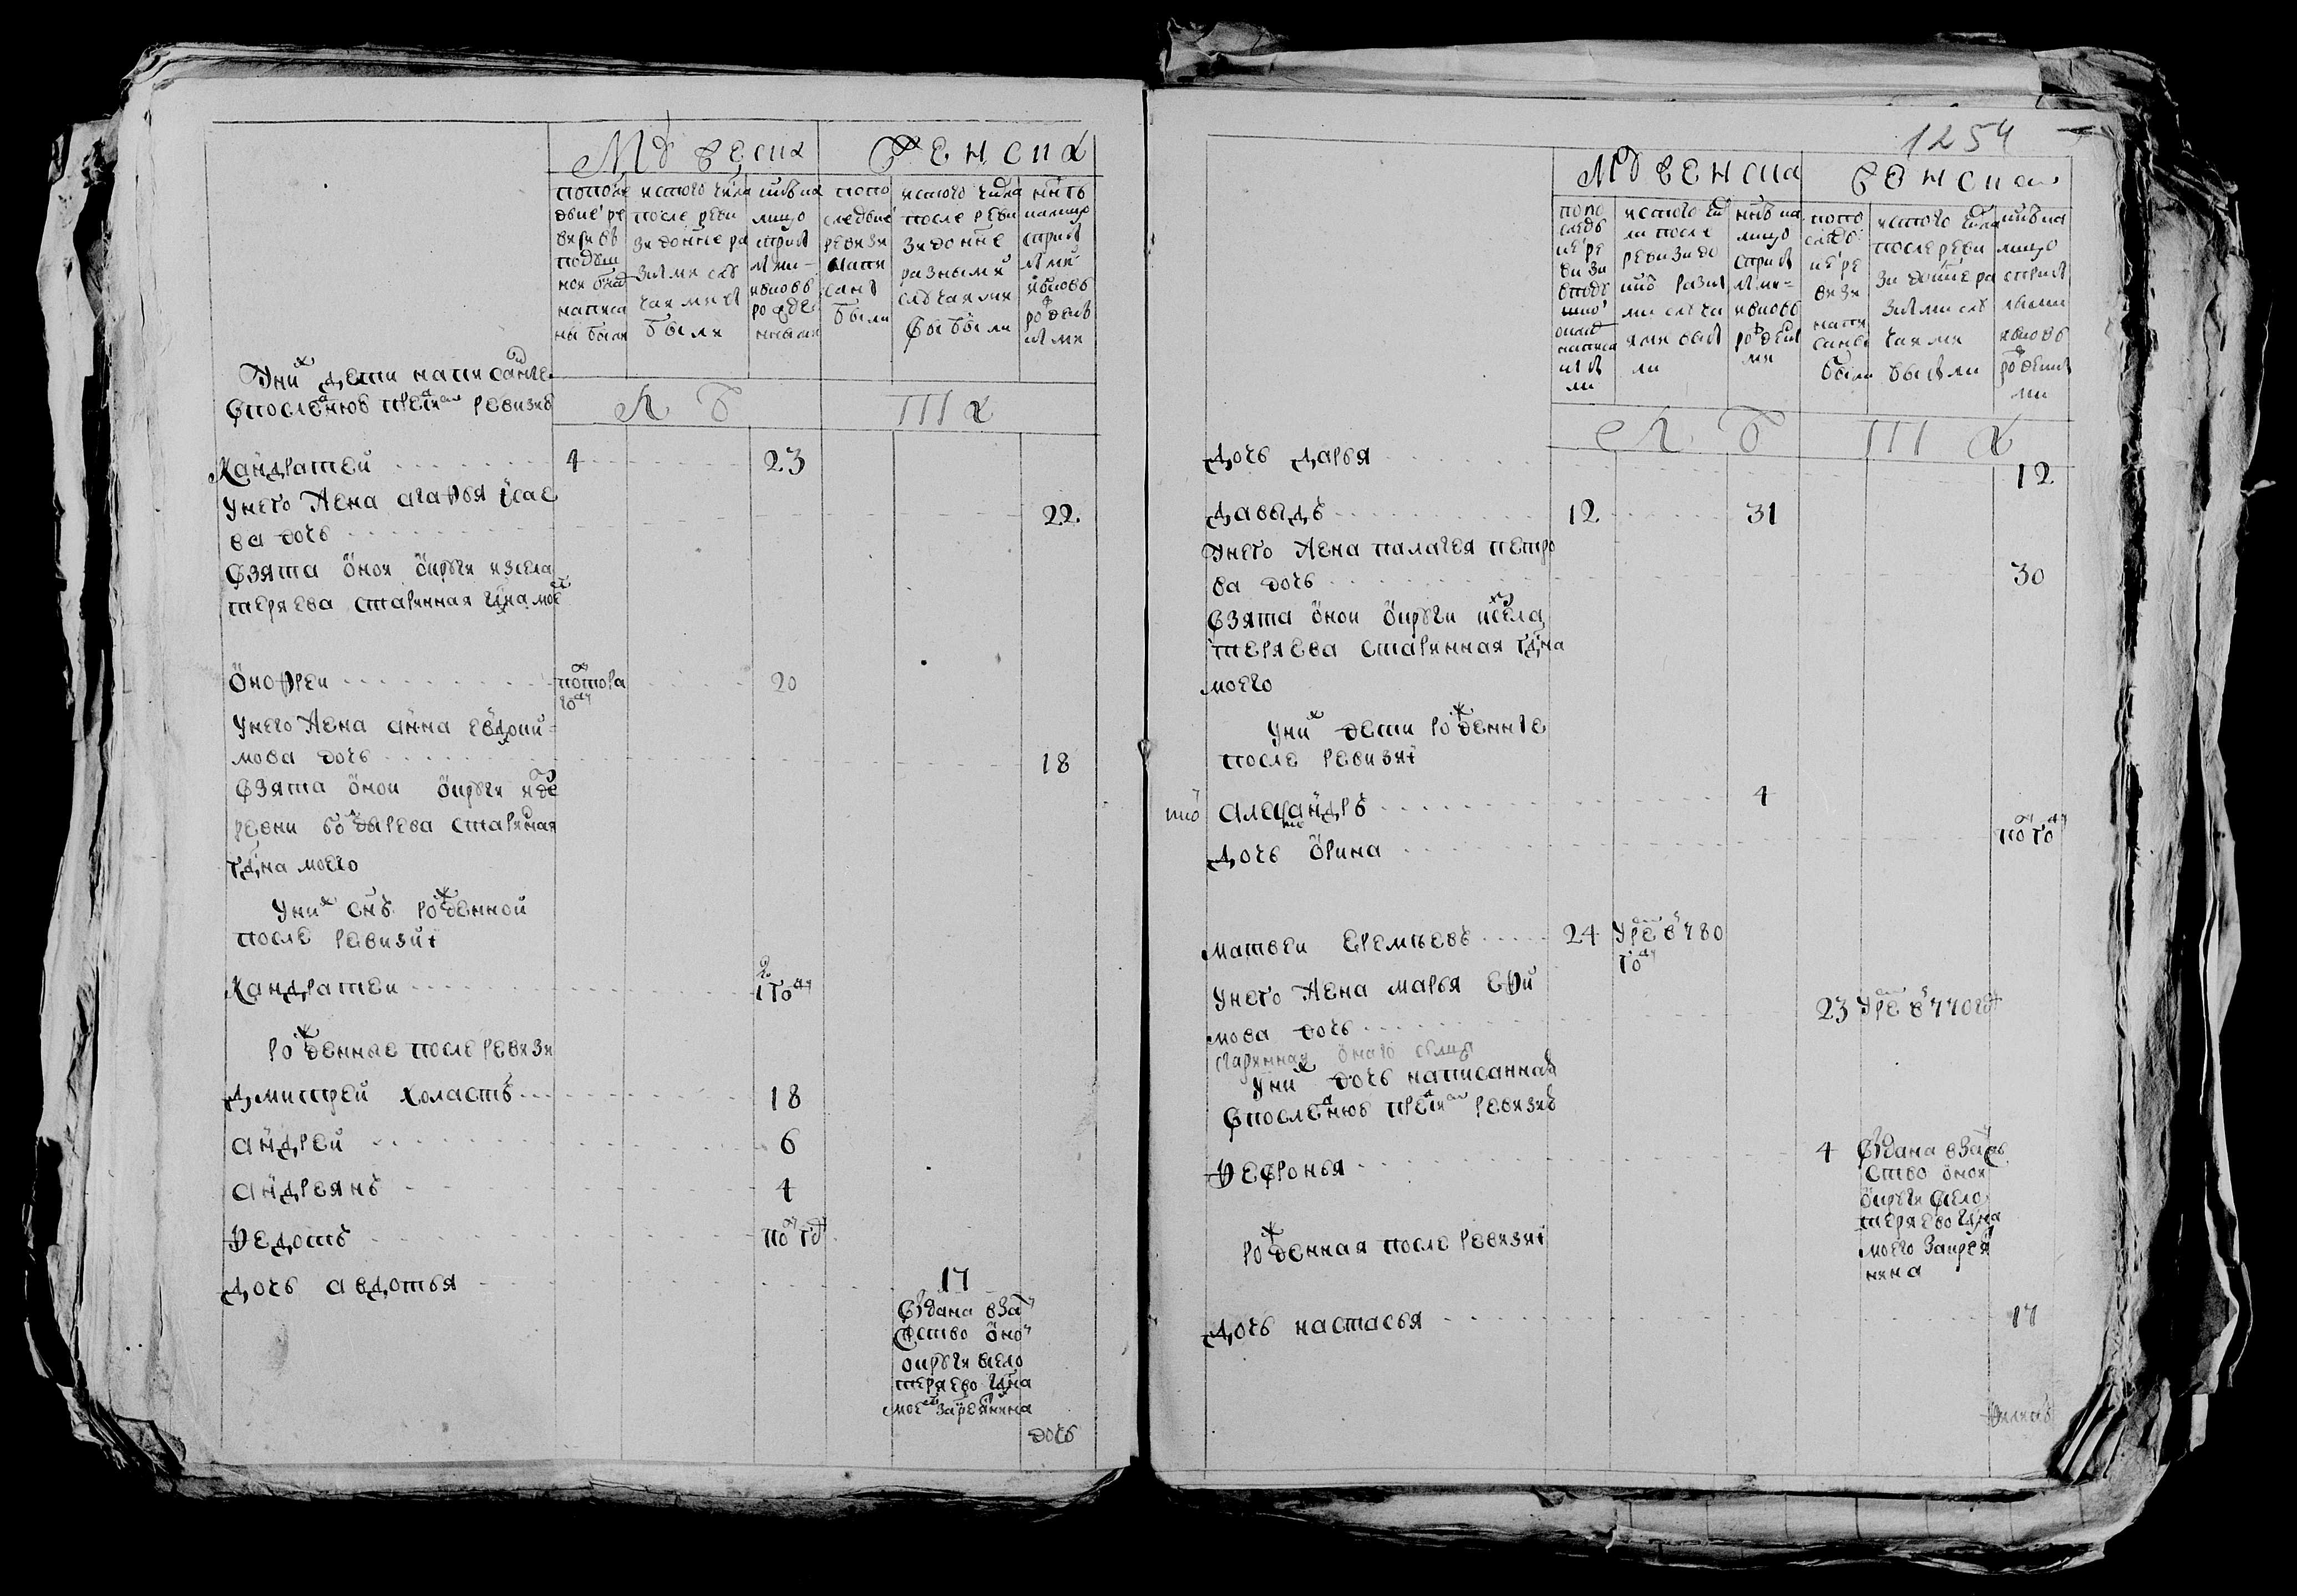 Мужеска
Женска
попослед
дней ре
визи въ
подуш
ной окла
написа
ны были
исtого числа
после реви
зи до ныне ра
зными слу
чаями вы
были
ныне на
лицо
с прибы
лыми
и вновь
рожде
нными
попо
следней
ревизи
напи
саны
были
истого числа
после реви
зи до ныне
разными
случаями
выбыли
ныне
на лицо
с прибы
лыми
и вновь
рожден
ными
Лѣ
та
У них дети написанные
в последнюю пред сим ревизию
Кандратей 4 23
у него жена Агафья Исае
ва дочь 22
взята оной округи из села
Теряева старинная гдна моего
Онофрей полтора году 20
у него жена Анна Евдоки-
мова дочь 18
взята оной округи из де
ревни Болдырева старинная
гдна моего
У них снъ рожденной
после ревизиі
Кандратей 2 году
рожденные после ревизи
Дмитрей холастъ 18
Андрей 6
Андреянъ 4
Федотъ полгод
дочь Авдотья 17
выдана в заму
жество оной
округи в село
Теряево гдна
моего за крестьянина
дочь
1254
Мужеска
Женска
попо
следъ
ней ре
визи
в поду
шной
оклад
написа
ны бы
ли
истого чи
сла после
ревизи до
ныне разны
ми случа
ями выбы
ли
ныне на
лицо
с прибы
лыми
и вновь
рожден
ми
попо
следъ
ней ре
визи
напи
саны
были
истого числа
после реви
зи до ныне ра
зными слу
чаями
выбыли
ныне на
лицо
с прибы
лыми
и вновь
рожденны
ми
Лѣ
та
дочь Дарья 12
Давыдъ 12 31
у него жена Палагея Петро
ва дочь 30
взята оной округи из села
Теряева старинная гдна
моего
У них дети рожденные
после ревизиі
Александръ 4
дочь Орина полгоду
Матвей Еремеевъ 24 умре в 780
году
у него жена Марья Ефи
мова дочь 23 умре в 770 год
старинная оного селца
У них дочь написанная
в последнюю пред сим ревизию
Февронья 4 выдана в заму
жество оной
округи в село
Теряево гдна
моего за кресть
янина
рожденная после ревизиі
дочь Настасья 17
Филипъ